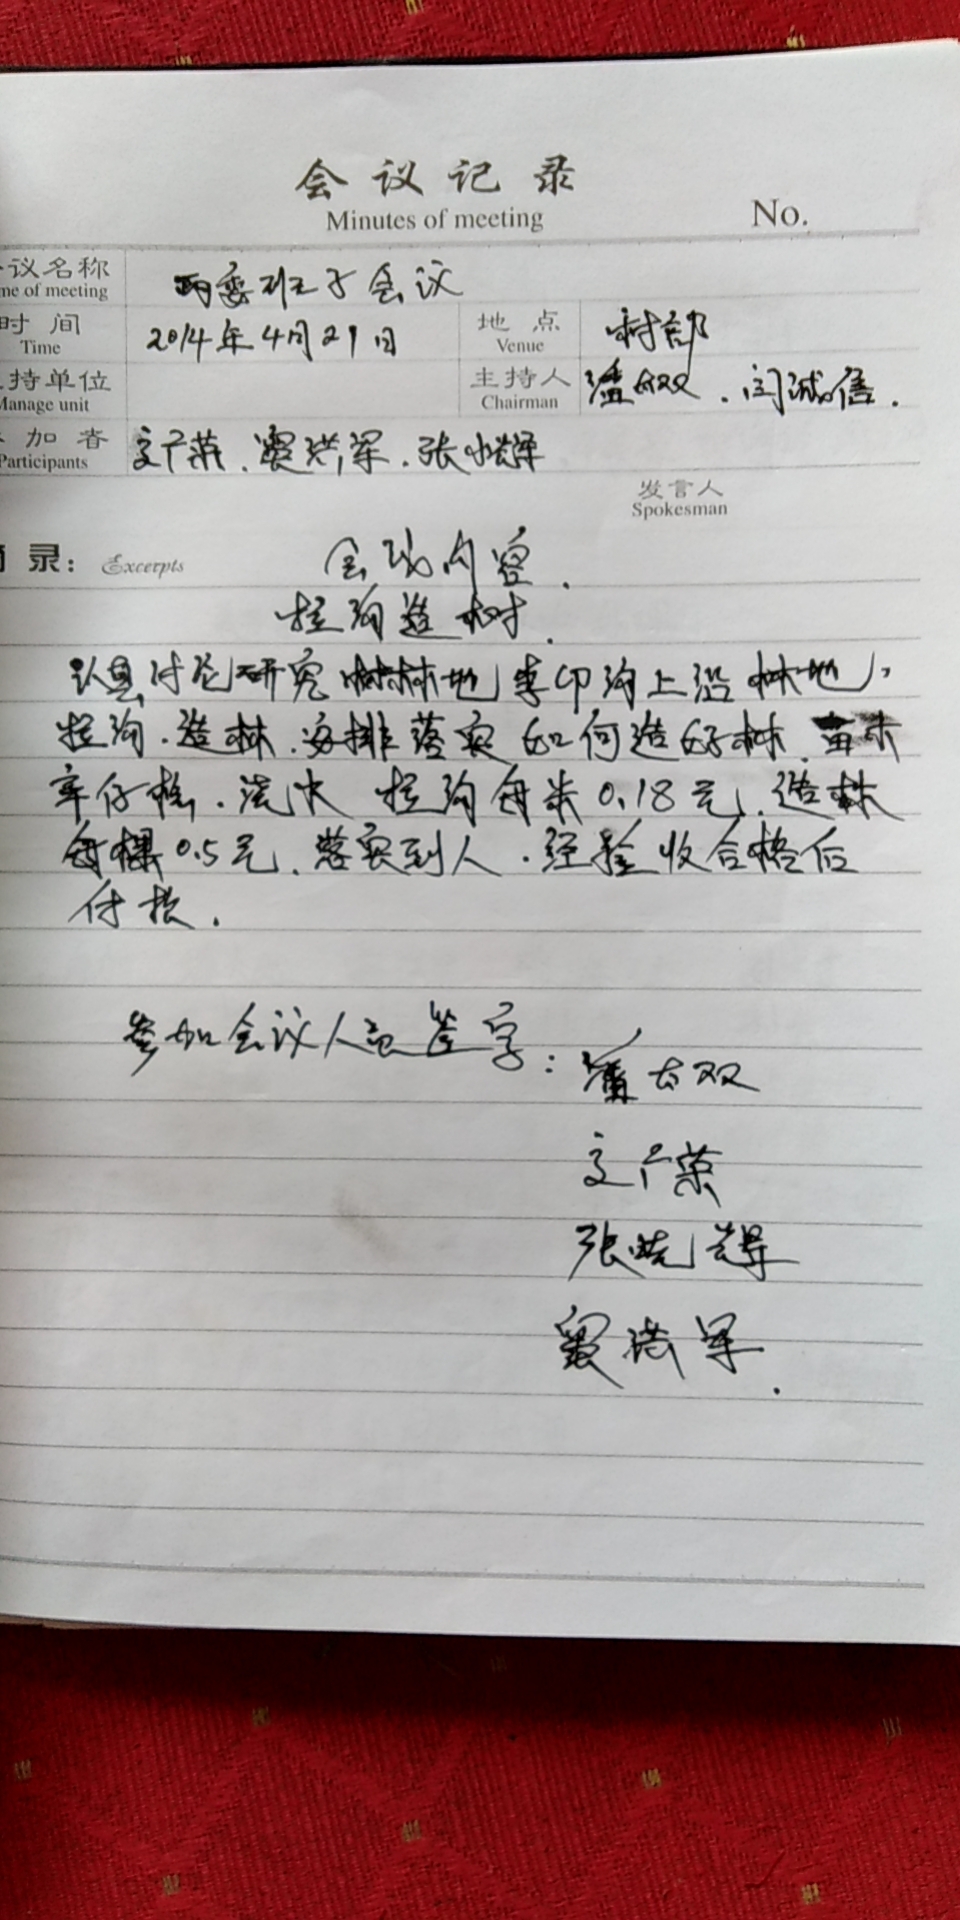 会议记录
Minutes of meeting
No.
议名称 两委班子会议
me of meeting
时间 2014年4月21日 地点 村部
Time Venue
持单位 主持人 潘太双、闫诚信.
Manage unit Chairman
加者 文广荣、窦洪军、张晓辉
Participants
发言人
Spokesman
录: Excerpts 会议内容.
拉沟造树.
认真讨论研究 林地 李印沟上沿林地,
拉沟、造林、安排落实如何造好林、苗木
牢仔栋、浇水 拉沟每米0.18元、造林
每棵0.5元、落实到人、经验收合格后
付款.
参加会议人员签字: 潘太双
文广荣
张晓辉
窦洪军.